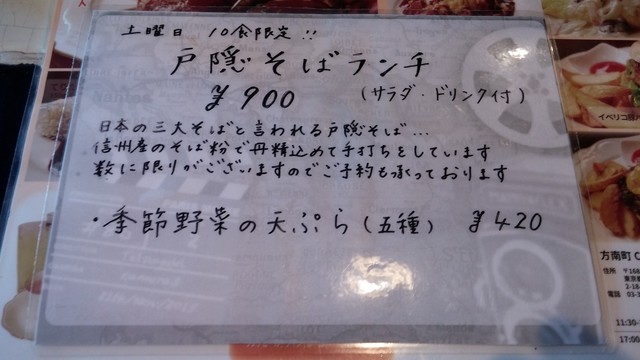 土曜日 10食限定!!
戸隠そばランチ
¥900 (サラダ・ドリンク付)
日本の三大そばと言われる戸隠そば…
信州産のそば粉で丹精込めて手打ちをしています
数に限りがございますのでご予約も承っております
・季節野菜の天ぷら(五種) ¥420
イベリコ
方南町
住所 〒168
東京都
2-18
電話 03-3
11:30-
17:00